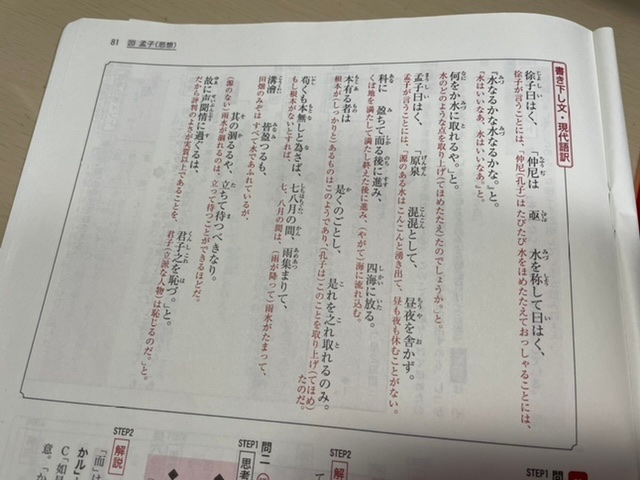 81 四 孟子(思想)
書き下し文・現代語訳
徐子曰はく、「仲尼は亟水を称して曰はく、
徐子が言うことには、「仲尼(孔子)はたびたび水をほめたたえておっしゃることには、
『水なるかな水なるかな。』と。
『水はいいなあ、水はいいなあ』と。
何をか水に取れるや。」と。
水のどのような点を取り上げ(てほめたたえ)たのでしょうか」と。
孟子曰はく、「原泉混混として、昼夜を舎かず。
孟子が言うことには、「源のある水はこんこんと湧き出て、昼も夜も休むことがない。
科に盈ちて而る後に進み、四海に放る。
くぼ地を満たして満たし終えた後に進み、(やがて)海に流れ込む。
本有る者は是くのごとし、是れを之れ取れるのみ。
根本が(しっかりと)あるものはこのようであり、(孔子は)このことを取り上げ(てほめ)たのだ。
苟くも本無しと為さば、七八月の間、雨集まりて、
もし根本がないとすれば、七、八月の間は、(雨が降って)雨水がたまって、
溝澮皆盈つるも、
田畑のみぞはすべて水であふれているが、
其の涸るるや、立ちて待つべきなり。
(源のない)雨水が涸れるのは、立って待つことができるほどだ。
故に声聞情に過ぐるは、君子之を恥づ。」と。
だから評判のよさが実質以上であることを、君子(立派な人物)は恥じるのだ」と。
STEP2
解説
「而」は
かル」
C「如是
意。「か
問二
STEP1
思考
STEP2
解
STEP1
問